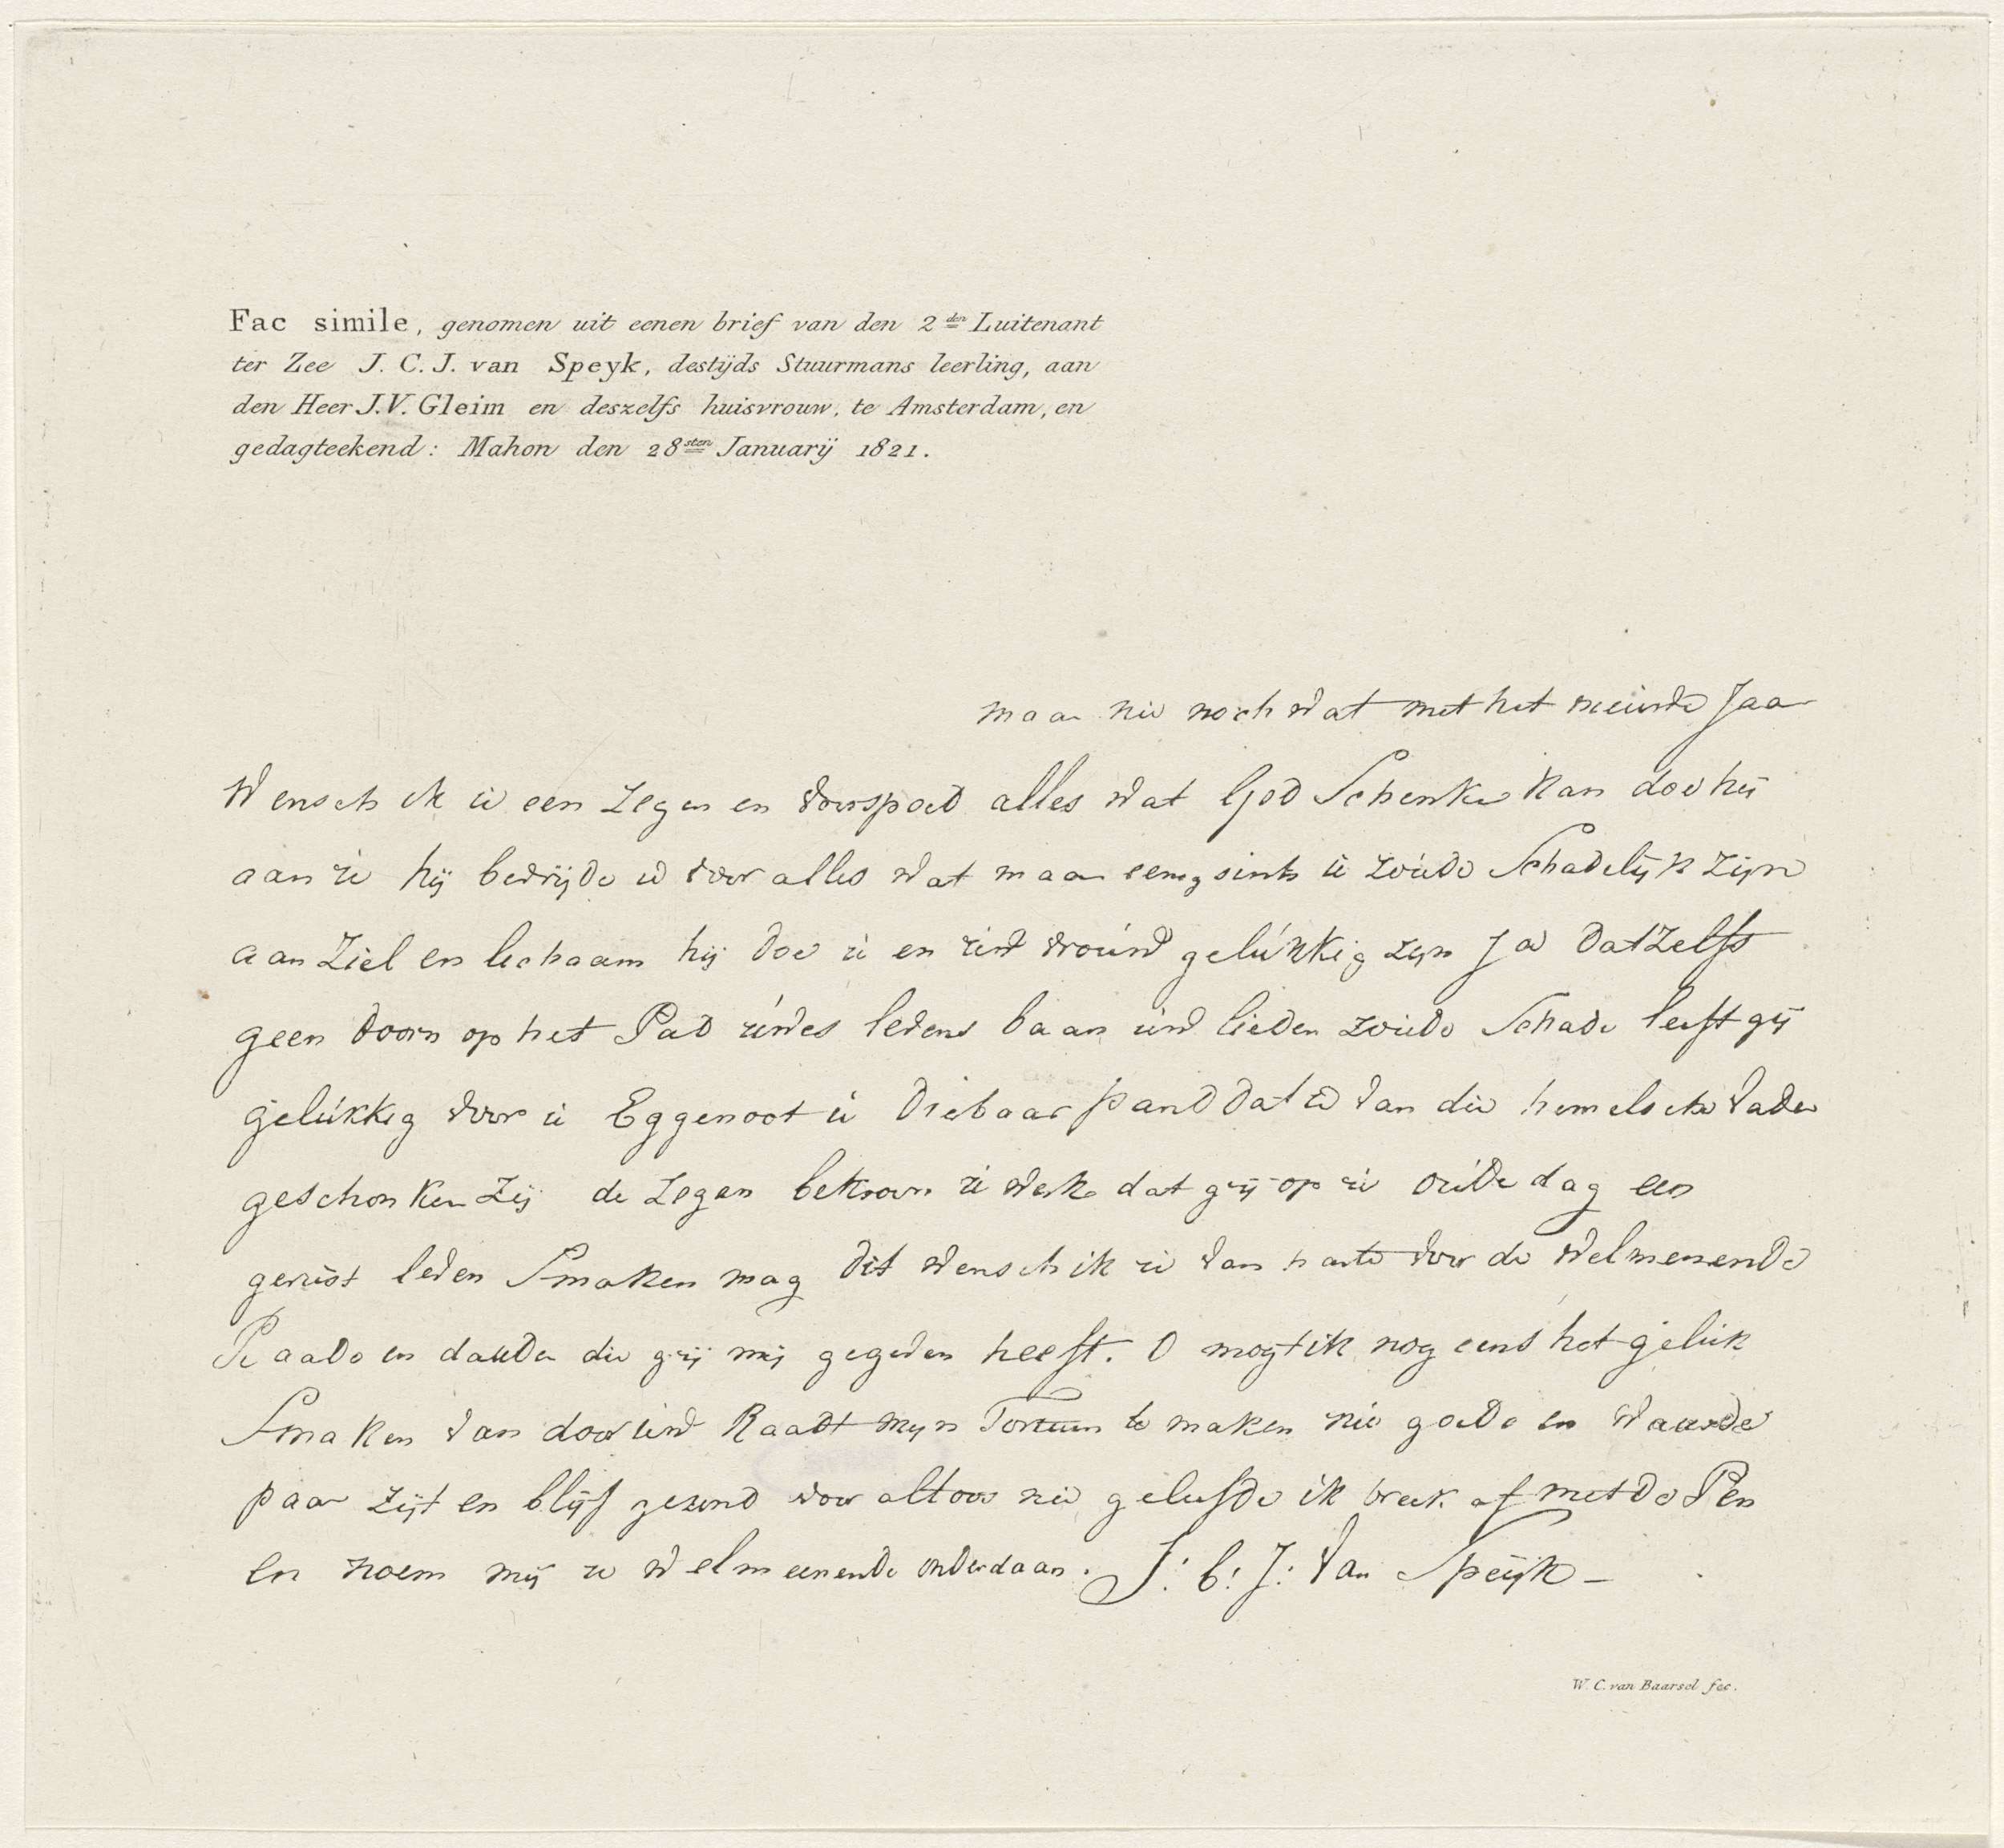 Fac simile, genomen uit eenen brief van den 2den Luitenant
ter Zee J. C. J. van Speyk, destijds Stuurmans leerling, aan
den Heer J. V. Gleim en deszelfs huisvrouw, te Amsterdam, en
gedagteekend: Mahon den 28sten Januarij 1821.
maar nu noch wat met het nieuwe Jaar
Wensch ik u een Zegen en voorspoed alles wat God Schenken kan doe hij
aan u hij bevrijde u voor alles wat maar eenigsints u zoude Schadelijk zijn
aan Ziel en lichaam hij doe u en uw vrouw gelukkig zijn Ja dat zelfs
geen doorn op het Pad uwes levens baan uw lieden zoude Schade leeft gij
gelukkig voor u Eggenoot u Dierbaar pand dat u van die hemelsche Vader
geschonken Zij de Zegen bekroon u werk dat gij op u oude dag een
gerust leven Smaken mag dit wensch ik u van harte voor de Welmenende
Raade en daaden die gij mij gegeven heeft. O mogt ik nog eens het geluk
Smaken van door uw Raadt mijn Fortuin te maken nu goede en Waarde
paar zijt en blijf gezond voor altoos nu geliefde ik breek af met de Pen
en noem mij u Welmeenende onderdaan. J: C: J: Van Speijk –
W. C. van Baarsel fec.